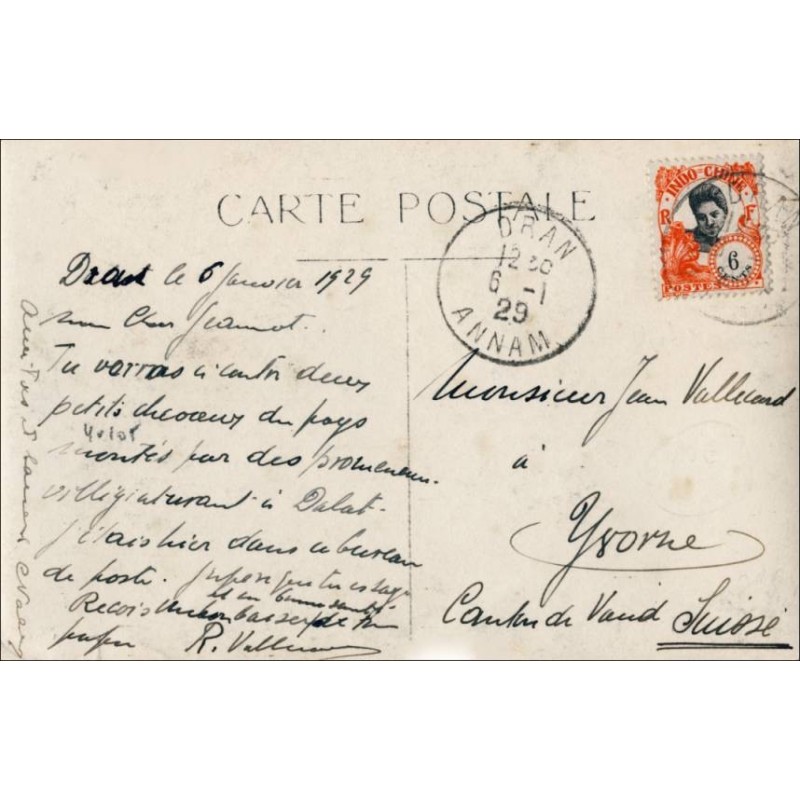 CARTE POSTALE
Dran le 6 Janvier 1929
mon Cher Jeannot.
Tu verras ci contre deux
petits chevaux du pays
montés par des promeneurs
villégiaturant à Dalat.
J'étais hier dans ce bureau
de poste. J'espère que tu es sage
et en bonne santé
Reçois un bon baiser de ton
papa R.
DRAN
12 30
6 -1
29
ANNAM
INDO-CHINE
R F
6
CENTS
POSTES
Monsieur Jean
à
Yvorne
Canton de Vaud Suisse